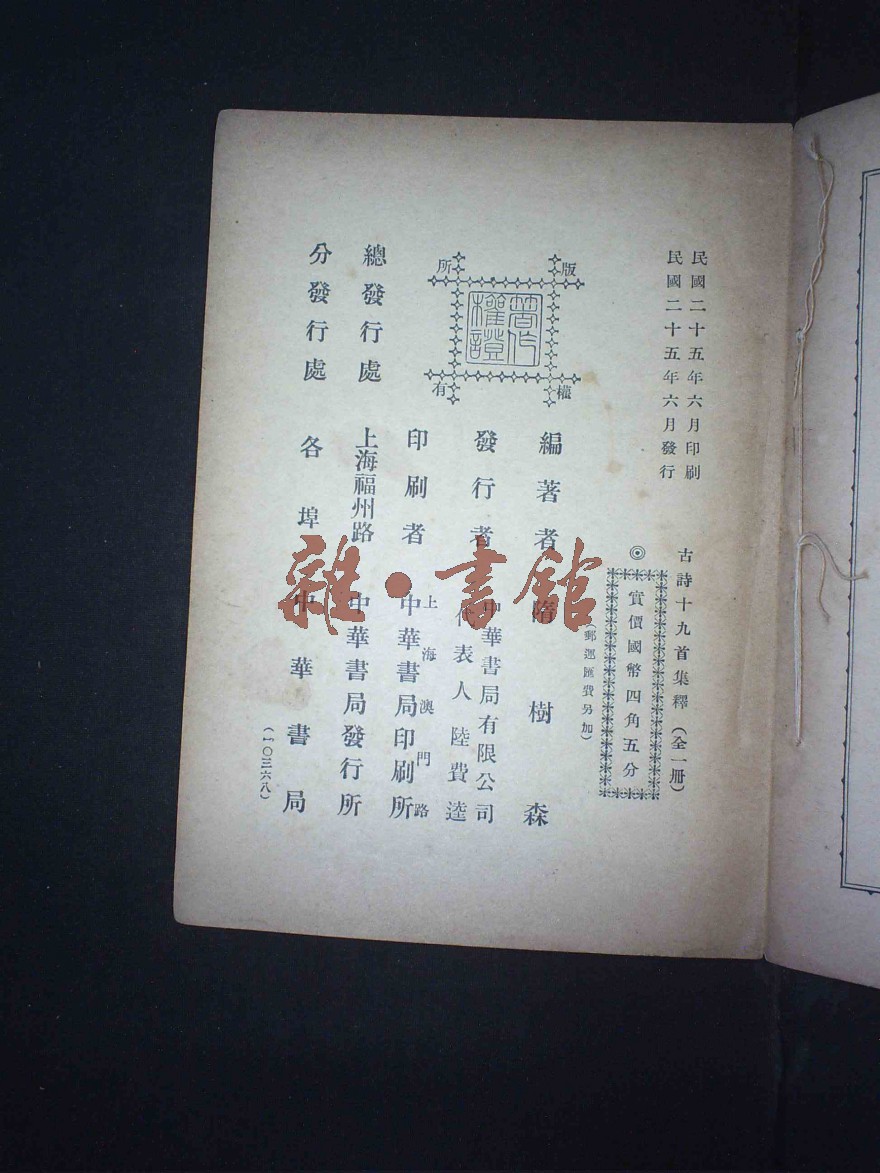 民國二十五年六月印刷
民國二十五年六月發行
古詩十九首集釋（全一冊）
◎實價國幣四角五分
（郵運匯費另加）
版權所有
著作權證
編著者 隋樹森
發行者 中華書局有限公司
代表人 陸費逵
印刷者 上海澳門路
中華書局印刷所
總發行處 上海福州路 中華書局發行所
分發行處 各埠 中華書局
（一〇三六八）
雜·書館